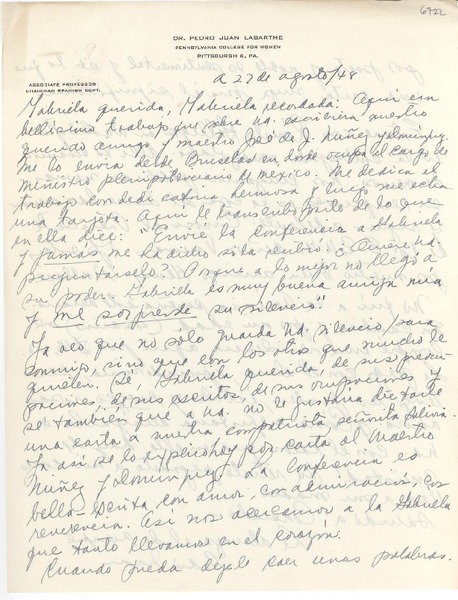 6422
DR. PEDRO JUAN LABARTHE
PENNSYLVANIA COLLEGE FOR WOMEN
PITTSBURGH 6, PA.
ASSOCIATE PROFESSOR
CHAIRMAN SPANISH DEPT.
a 27 de agosto/48
Gabriela querida, Gabriela recordada: Aquí un
bellísimo trabajo que sobre Ud. escribiera nuestro
querido amigo y maestro José de J. Núñez y Domínguez.
Me lo envía desde Bruselas en donde ocupa el cargo de
ministro plenipotenciario de México. Me dedica el
trabajo con dedicatoria hermosa y luego me echa
una tarjeta. Aquí le transcribo parte de lo que
en ella dice: "Envié la conferencia a Gabriela
y jamás me ha dicho si la recibió ¿Quiere Ud.
preguntárselo? Porque a lo mejor no llegó a
su poder. Gabriela es muy buena amiga mía
y me sorprende su silencio".
Ya veo que no sólo guarda Ud. silencio para
conmigo, sino que con los otros que mucho le
quieren. Sé, Gabriela querida, de sus preocu-
paciones, de sus escritos, de sus ocupaciones y
sé también que a Ud. no le gustaría dictarle
una carta a nuestra compatriota, señorita
Ya así se lo explico hoy por carta al Maestro
Núñez y Domínguez. La Conferencia es
bella. Escrita con amor, con admiración, con
reverencia. Así nos acercamos a la Gabriela
que tanto llevamos en el corazón.
Cuando pueda déjele caer unas palabras.